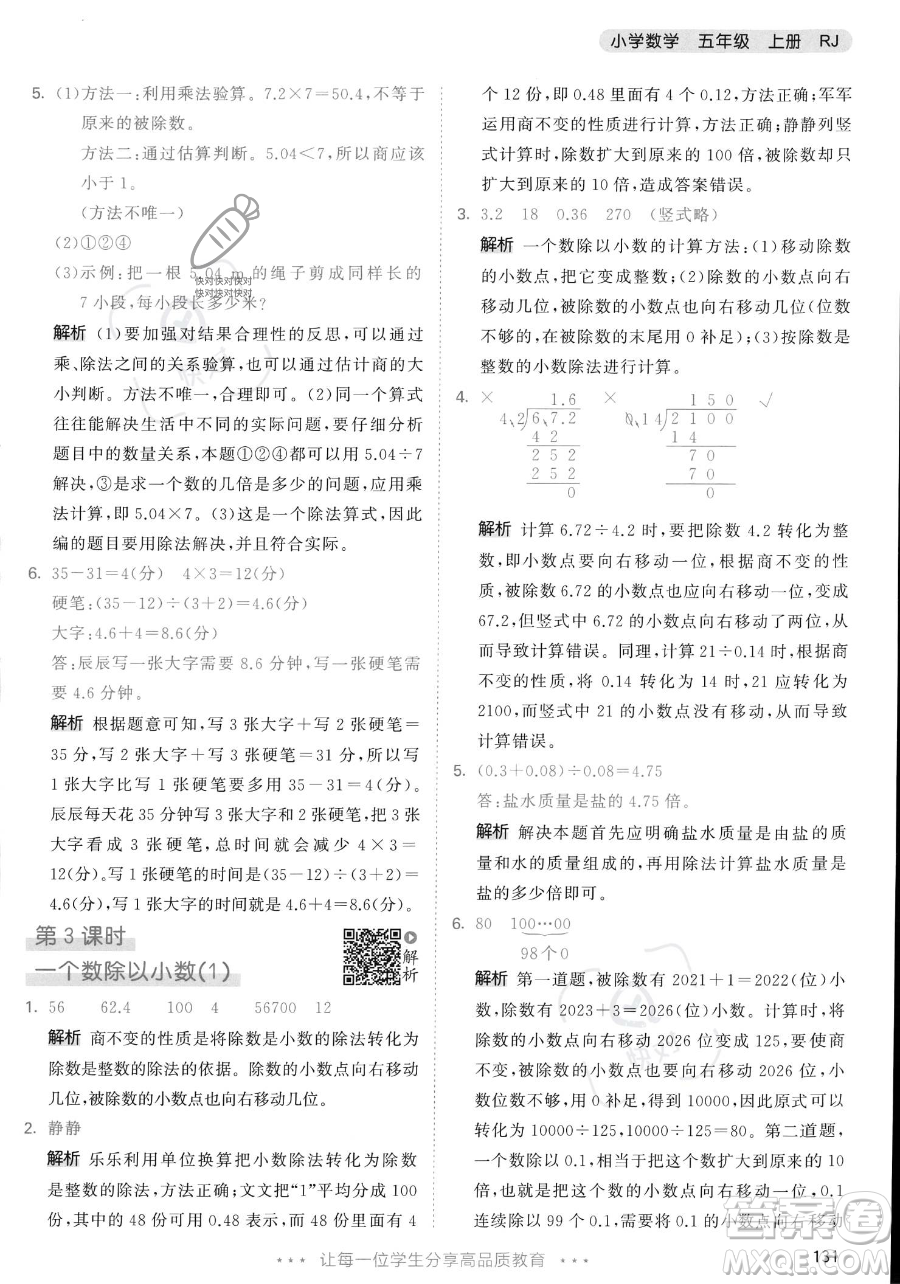 小学数学 五年级 上册 RJ
5. (1)方法一:利用乘法验算。7.2×7=50.4,不等于
原来的被除数。
方法二:通过估算判断。5.04<7,所以商应该
小于1。
(方法不唯一)
(2)①②④
(3)示例:把一根 5.04 m的绳子剪成同样长的
7小段,每小段长多少米?
快对快对快对
快对快对快对
解析 (1)要加强对结果合理性的反思,可以利用
乘、除法之间的关系验算,也可以通过估计商的大
小判断。方法不唯一,合理即可。(2)同一个算式
往往能解决生活中不同的实际问题,要仔细分析
题目中的数量关系,本题①②④都可以用5.04÷7
解决,③是求一个数的几倍是多少的问题,应用乘
法计算,即5.04×7。(3)这是一个除法算式,因此
编的题目要用除法解决,并且符合实际。
6. 35-31=4(分) 4×3=12(分)
硬笔:(35-12)÷(3+2)=4.6(分)
大字:4.6+4=8.6(分)
答:辰辰写一张大字需要8.6分钟,写一张硬笔需
要4.6分钟。
解析 根据题意可知,写3张大字+写2张硬笔=
35分,写2张大字+写3张硬笔=31分,所以写
1张大字比写1张硬笔多用35-31=4(分)。
辰辰每天花35分钟写3张大字和2张硬笔,把3
张大字看成3张硬笔,则所用时间减少4×3=
12(分)。写一张硬笔的时间就是(35-12)÷(3+2)=
4.6(分),写一张大字的时间就是4.6+4=8.6(分)。
第3课时
一个数除以小数(1)
解析
1. 56 62.4 100 4 56700 12
解析 商不变的性质是将除数是小数的除法转化为
除数是整数的除法的依据。除数的小数点向右移动
几位,被除数的小数点也向右移动几位。
2. 静静
解析 乐乐利用单位换算把小数除法转化为除数
是整数的除法,方法正确;文文把“1”平均分成100
份,其中的48份可以用0.48表示,48里面有4
个12份,即0.48里面有4个0.12,方法正确;军军
运用商不变的性质进行计算,方法正确;静静列竖
式计算时,除数扩大到原来的100倍,被除数却只
扩大到原来的10倍,造成答案错误。
3. 3.2 18 0.36 270 (竖式略)
解析 一个数除以小数的计算方法:(1)移动除数
的小数点,把它变成整数;(2)除数的小数点向右
移动几位,被除数的小数点也向右移动几位(位数
不够的,在被除数的末尾用0补足);(3)按除数是
整数的小数除法进行计算。
4. × 1.6 × 150 √
4.2 6.7.2 0.14 2100
42 14
252 70
252 70
0 0
解析 计算6.72÷4.2时,要把除数4.2转化为整
数,即小数点要向右移动一位,根据商不变的性
质,被除数6.72的小数点向右移动一位应为
67.2,但是竖式中6.72的小数点移动了两位,从
而导致计算错误。同理,计算21÷0.14时,根据商
不变的性质,将0.14转化为14,21应转化为
2100,而竖式中21的小数点没有移动,从而导致
计算错误。
5. (0.3+0.08)÷0.08=4.75
答:盐水质量是盐的4.75倍。
解析 解决本题首先应明确盐水质量是由盐的质
量和水的质量组成的,再用除法计算盐水质量是
盐的多少倍即可。
6. 80 100…00
98个0
解析 第一道题,被除数有2021+1=2022(位)小
数,除数有2023+3=2026(位)小数。计算时,将
除数的小数点向右移动2026位变成125,要使商
不变,被除数的小数点也要向右移动2026位,
位数不够,用0补足,因此原式可以转化为
10000÷125,10000÷125=80。第二道题,一
个数除以0.1,相当于把这个数扩大到原来的10
倍,即小数点向右移动一位,所以,用1除以0.1
连续除以99个0.1的小数点向右移动
让每一位学生分享高品质教育
131
MXQE.COM